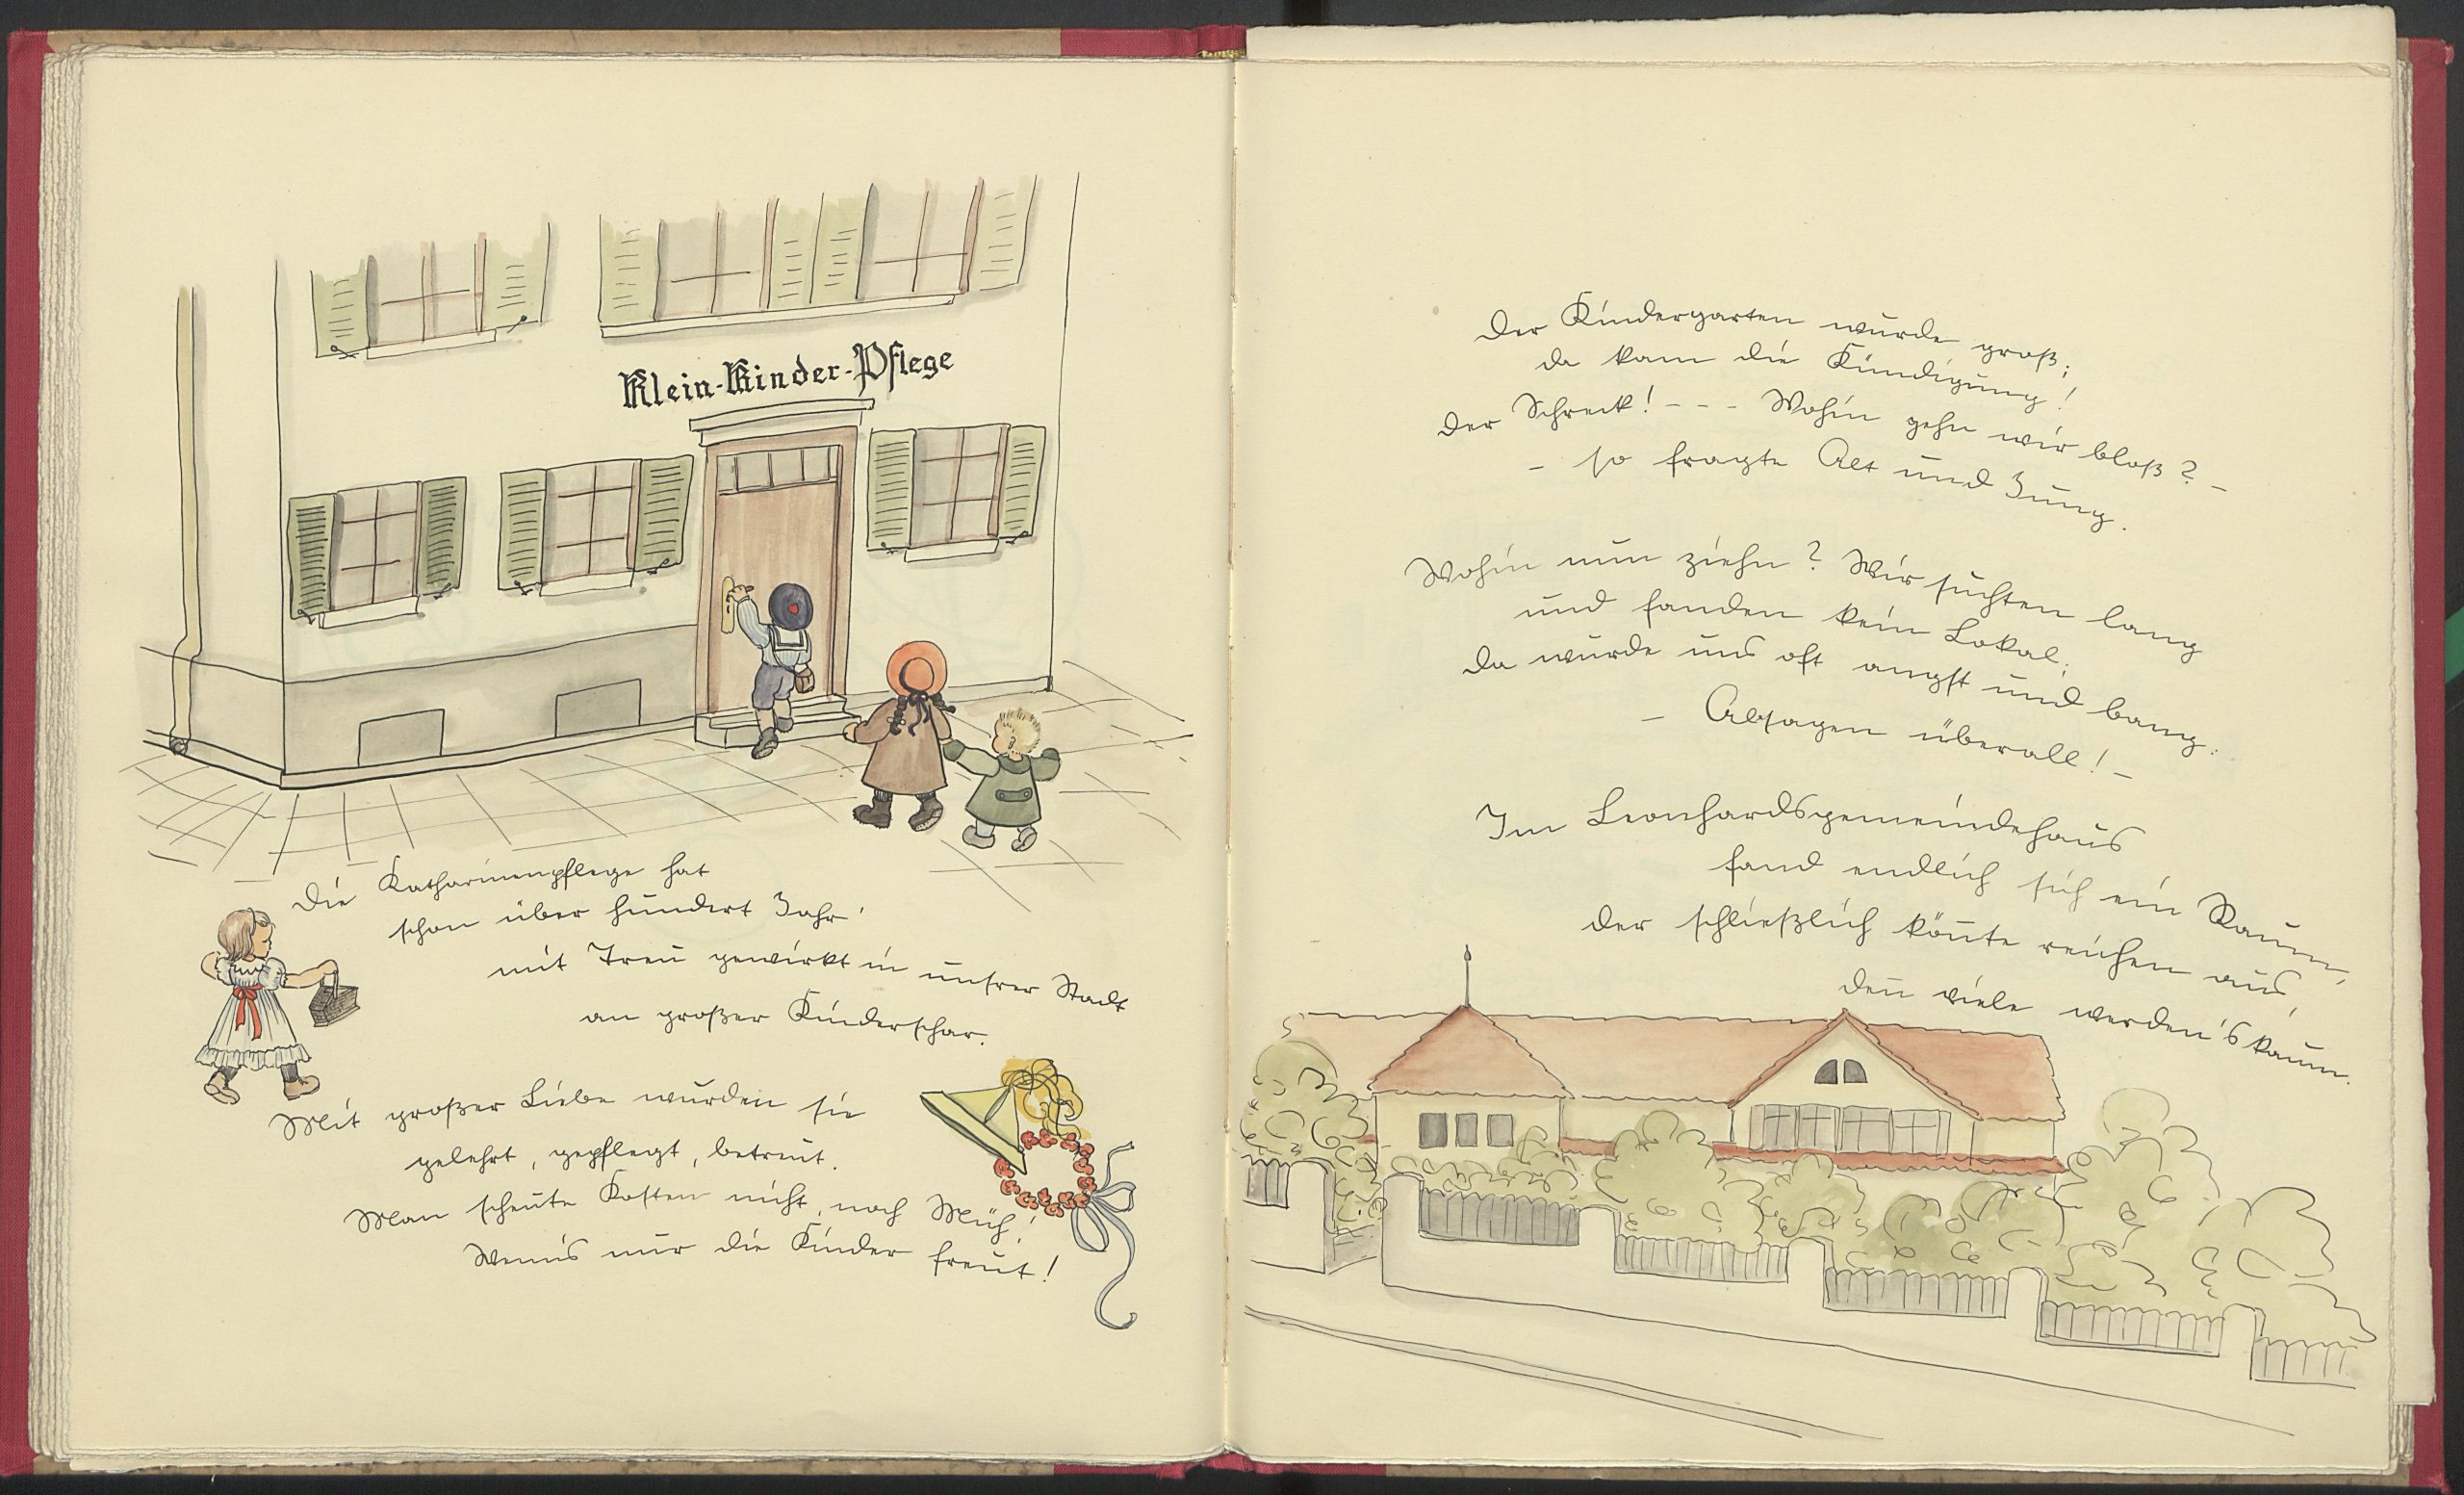 Klein-Kinder-Pflege
Die Katharinenpflege hat
schon über hundert Jahr'
mit Treu gewirkt in unsrer Stadt
an großer Kinderschar.
Mit großer Liebe wurden sie
gelehrt, gepflegt, betreut.
Man scheute Kosten nicht, noch Müh,
Wenn's nur die Kinder freut!
Der Kindergarten wurde groß;
da kam die Kündigung!
Der Schreck! - - - Wohin gehn wir bloß? -
- so fragte Alt und Jung.
Wohin nun ziehn? Wir suchten lang
und fanden kein Lokal;
Da wurde uns oft angst und bang:
- Absagen überall! -
Im Leonhardsgemeindehaus
fand endlich sich ein Raum,
Der schließlich kön̅te reichen aus,
den̅ viele werden's kaum.